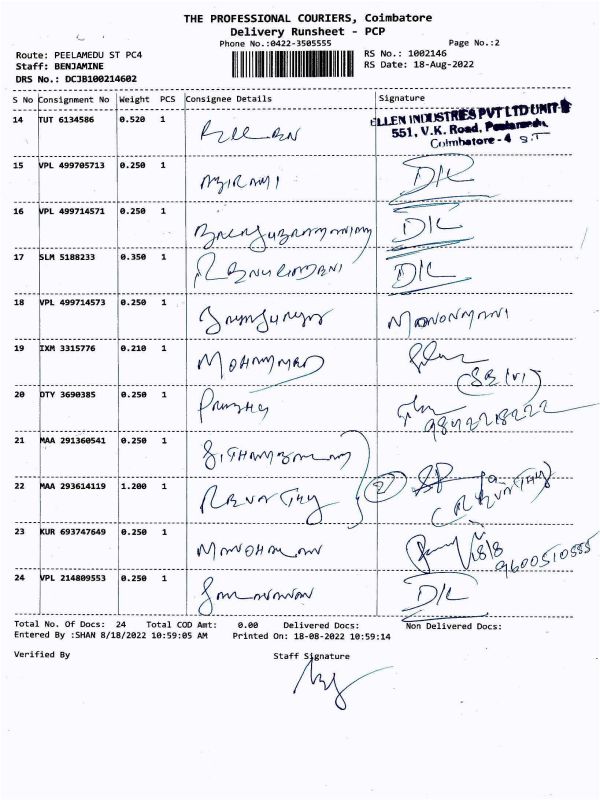 THE PROFESSIONAL COURIERS, Coimbatore
Delivery Runsheet - PCP
Phone No.:0422-3505555 Page No.:2
Route: PEELAMEDU ST PC4 RS No.: 1002146
Staff: BENJAMINE RS Date: 18-Aug-2022
DRS No.: DCJB100214602
S No Consignment No Weight PCS Consignee Details Signature
14 TUT 6134586 0.520 1
ELLEN INDUSTRIES PVT LTD UNIT-II
551, V.K. Road,
Coimbatore - 4
15 VPL 499705713 0.250 1 ABIRAMI D/L
16 VPL 499714571 0.250 1 D/L
17 SLM 5188233 0.350 1 D/L
18 VPL 499714573 0.250 1 MANONMANI
19 IXM 3315776 0.210 1 MOHAMMAD
20 OTY 3690385 0.250 1 9842218222
21 MAA 291360541 0.250 1
22 MAA 293614119 1.200 1 REVATHY 2 (REVATHY)
23 KUR 693747649 0.250 1 MANOHARAN 18/8 9600510555
24 VPL 214809553 0.250 1 D/L
Total No. Of Docs: 24 Total COD Amt: 0.00 Delivered Docs: Non Delivered Docs:
Entered By :SHAN 8/18/2022 10:59:05 AM Printed On: 18-08-2022 10:59:14
Verified By Staff Signature